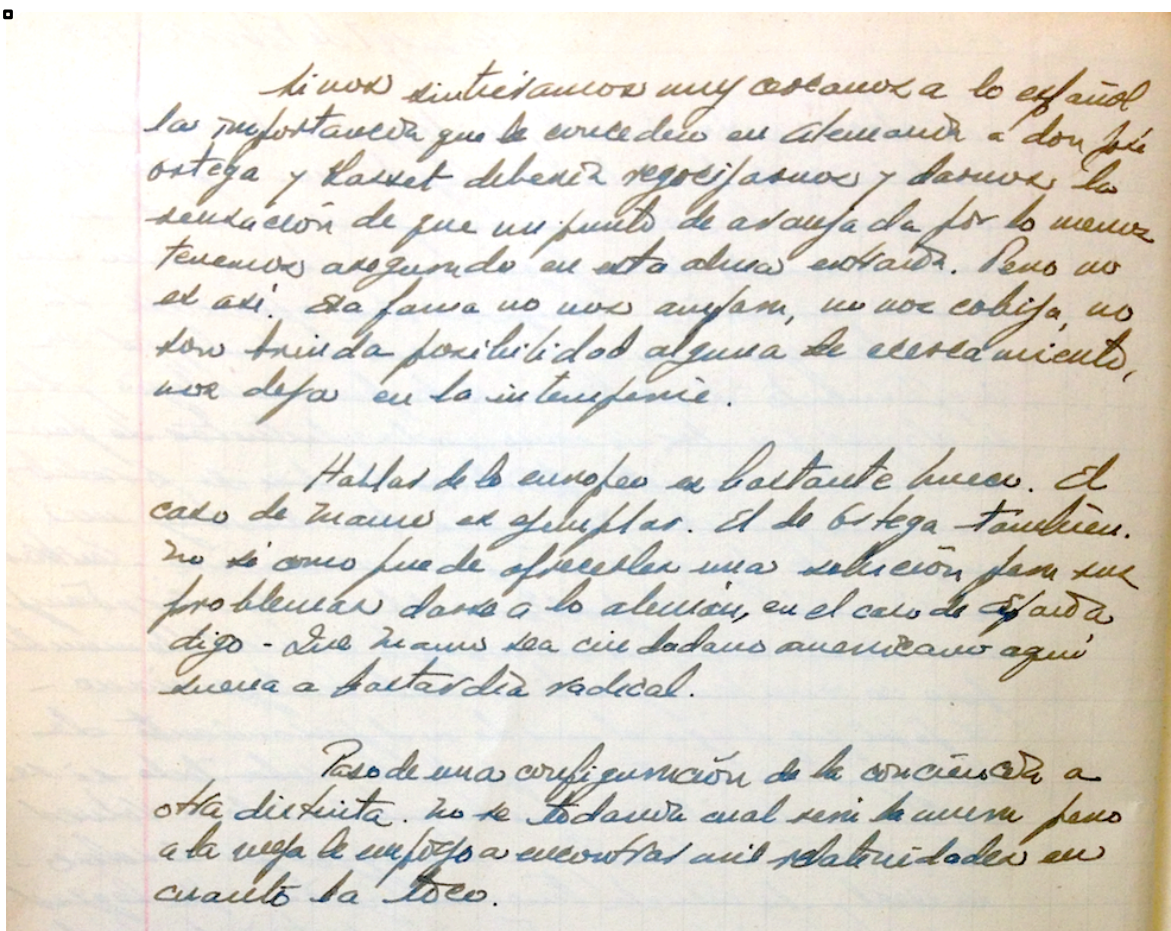 Si nos sintiéramos muy cercanos a lo español
la importancia que le conceden en Alemania a don José
Ortega y Gasset debería regocijarnos y darnos la
sensación de que un punto de avanzada por lo menos
tenemos asegurado en esta alma extraña. Pero no
es así. Esa fama no nos ampara, no nos cobija, no
nos brinda posibilidad alguna de acercamiento,
nos deja en la intemperie.
Hablar de lo europeo es bastante hueco. El
caso de Mann es ejemplar. El de Ortega también.
No sé como puede ofrecerles una solución para sus
problemas darse a lo alemán, en el caso de España
digo - Que Mann sea ciudadano americano aquí
suena a bastardía radical.
Paso de una configuración de la conciencia a
otra distinta. No sé todavía cual será la nueva pero
a la vieja le empiezo a encontrar mil relatividades en
cuanto la toco.